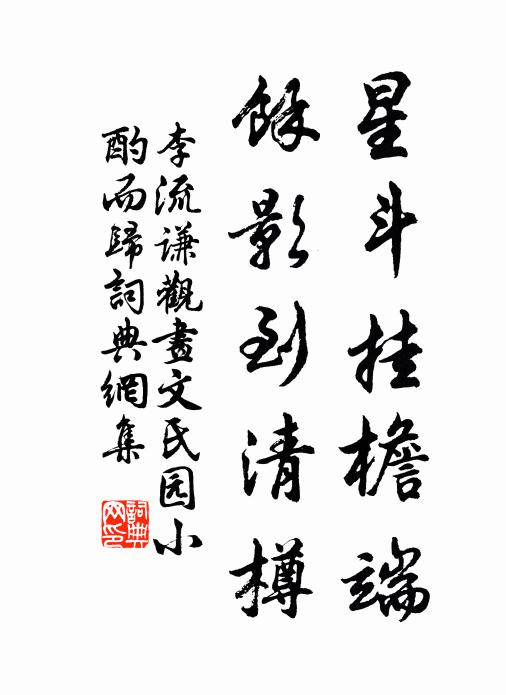 星斗挂檐端
餘影到清樽
李流谦觀畫文民园小
酌而歸詞典網集
詞典
网印